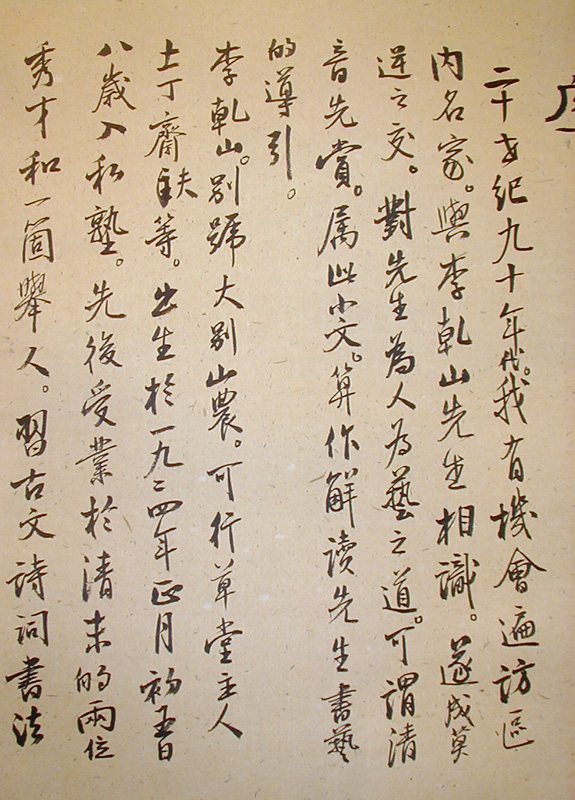 二十世紀九十年代。我有機會遍訪區
内名家。與李乾山先生相識。遂成莫
逆之交。對先生為人為藝之道。可謂清
音先賞。属此小文。算作解讀先生書藝
的導引。
李乾山。别號大别山農。可行草堂主人
土丁齋等。出生於一九二四年正月初五日
八歲入私塾。先後受業於清末的兩位
秀才和一箇舉人。習古文詩詞書法